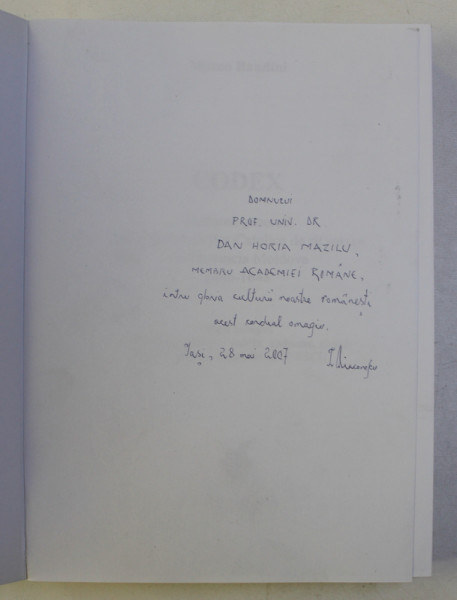 CODEX
DOMNULUI
PROF. UNIV. DR
DAN HORIA MAZILU,
MEMBRU ACADEMIEI ROMÂNE,
întru gloria culturii noastre românești
acest cordial omagiu.
Iași, 28 mai 2007